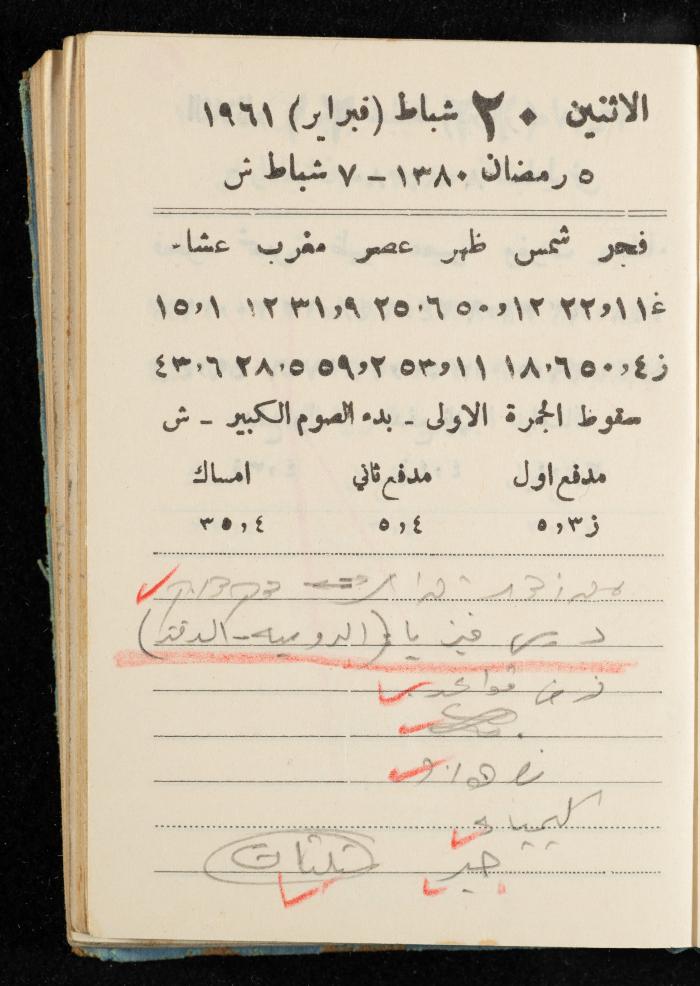 الاثنين ٢٠ شباط (فبراير) ١٩٦١
٥ رمضان ١٣٨٠ - ٧ شباط ش
فجر شمس ظهر عصر مغرب عشاء
غ ١١،٢٢ ١٢،٥٠ ٦،٢٥ ٩،٣١ ١٢ ١،١٥
ز ٤،٥٠ ٦،١٨ ١١،٥٣ ٢،٥٩ ٥،٢٨ ٦،٤٣
سقوط الجمرة الاولى - بدء الصوم الكبير - ش
مدفع اول مدفع ثاني امساك
ز ٣،٥ ٤،٥ ٤،٣٥
درس فيزيا (
فرض قواعد
كيمياء
جبر مثلثات